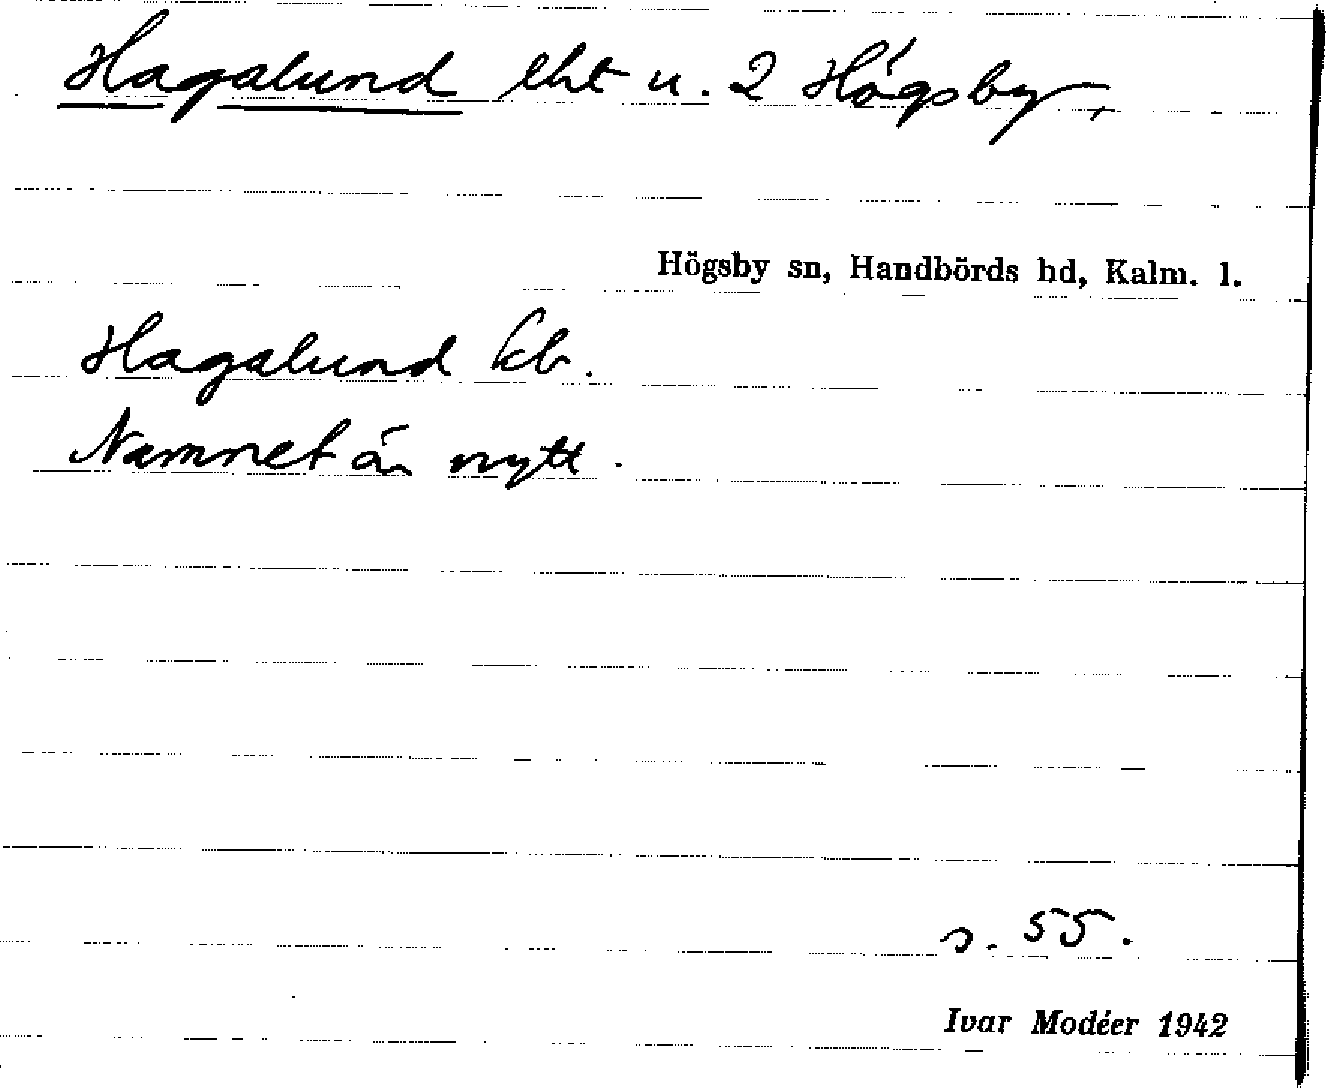 Hagalund lht u. 2 Högsby,
Högsby sn, Handbörds hd, Kalm. l.
Hagalund kb.
Namnet är nytt.
s. 55.
Ivar Modéer 1942